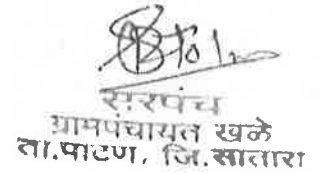 सरपंच
ग्रामपंचायत खळे
ता.पाटण, जि.सातारा